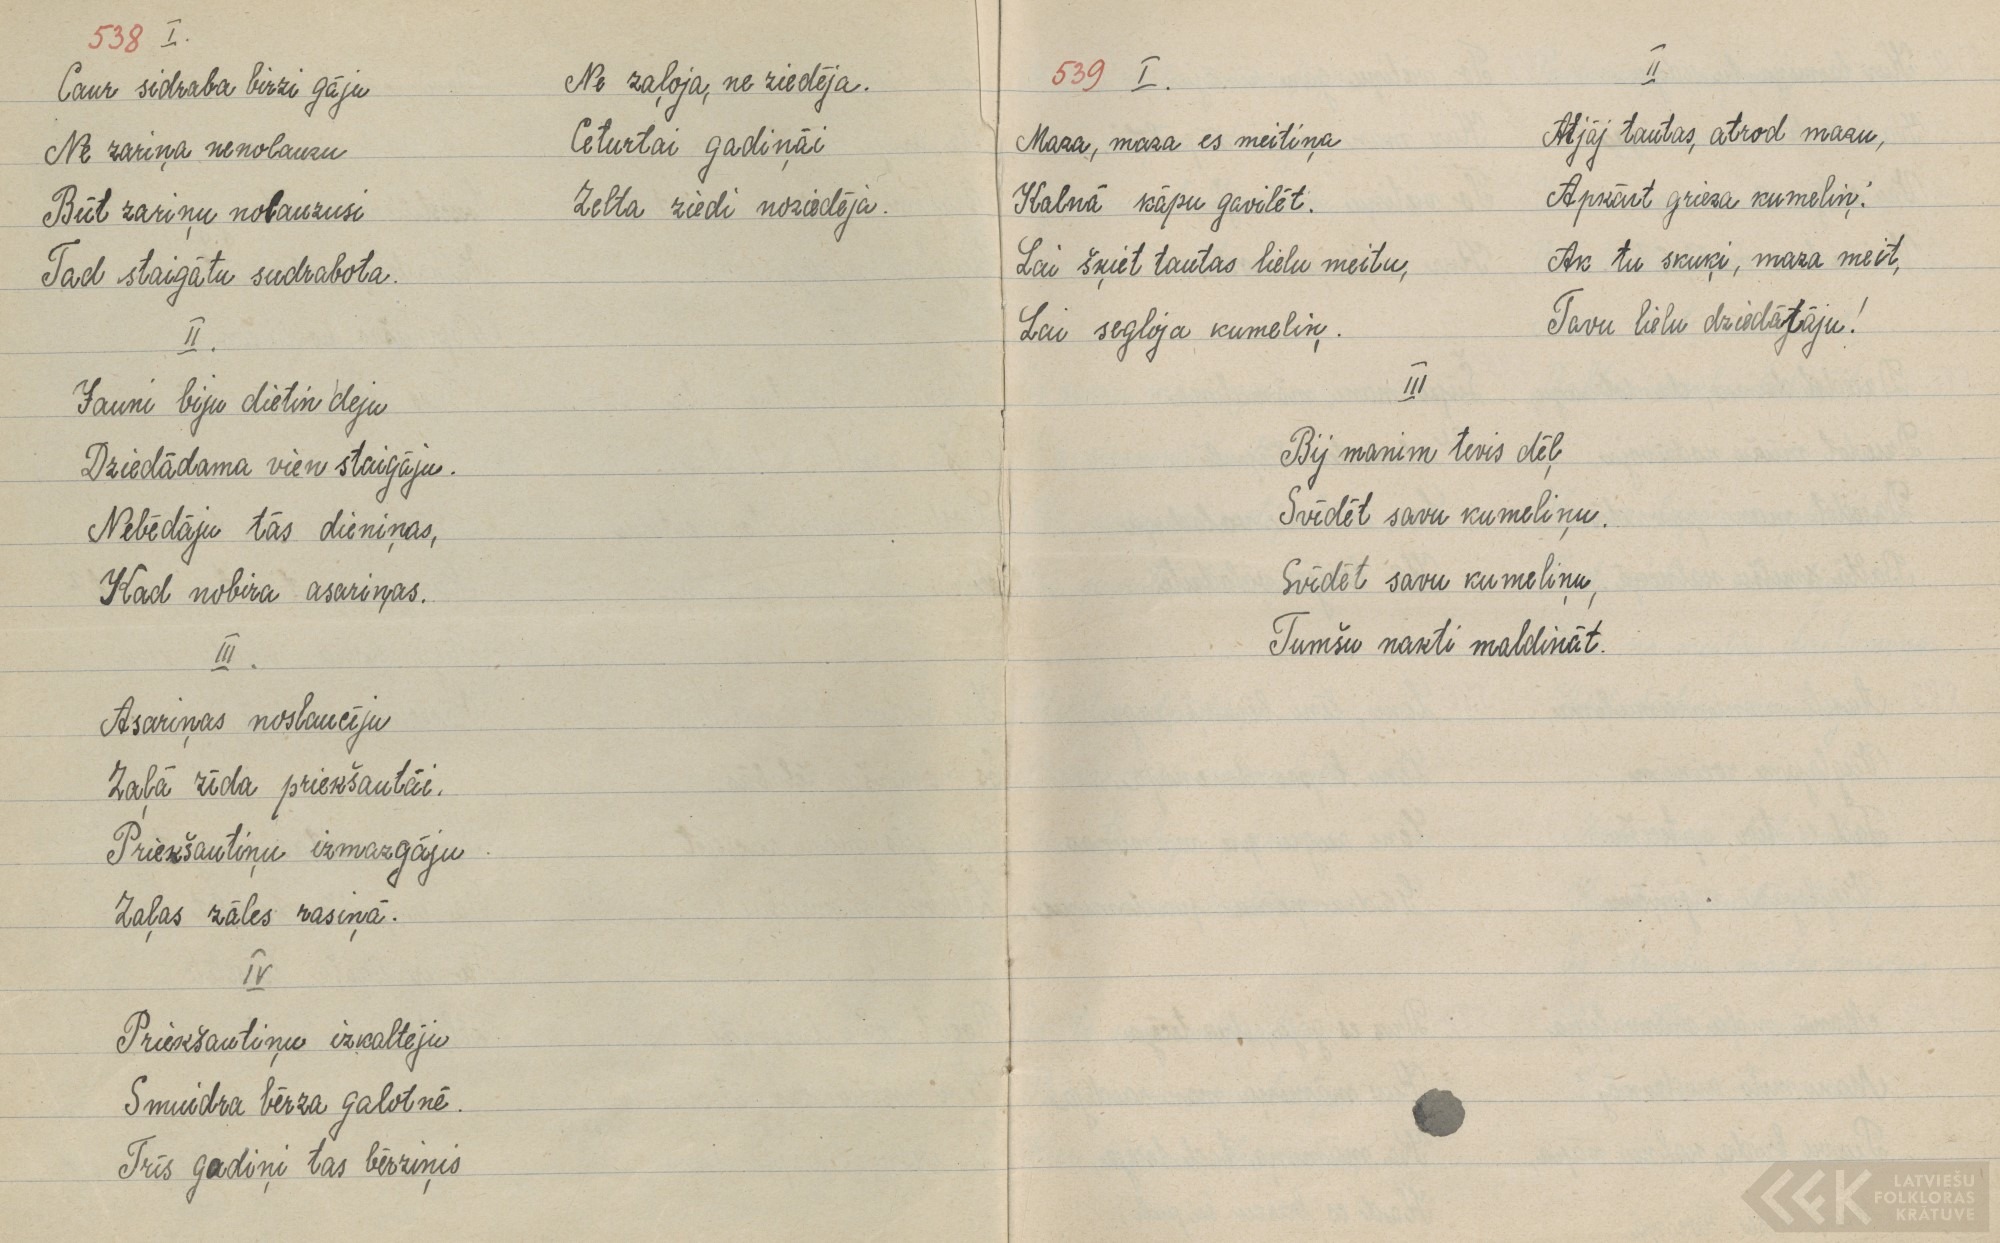 538 I.
Caur sidraba birzi gāju
Ne zariņa nenolauzu
Būt zariņu nolauzusi
Tad staigātu sudrabota.
II.
Jauni biju dietin'deju
Dziedādama vien staigāju.
Nebēdāju tās dieniņas,
Kad nobira asariņas.
III.
Asariņas noslaucīju
Zaļā zīda priekšautāi.
Priekšautiņu izmazgāju
Zaļas zāles rasiņā.
IV
Priekšautiņu izkaltēju
Smuidra bērza galotnē.
Trīs gadiņi tas bērziņis
Ne zaļoja, ne ziedēja.
Ceturtai gadiņāi
Zelta ziedi noziedēja.
539 I.
Maza, maza es meitiņa
Kalnā kāpu gavilēt.
Lai šķiet tautas lielu meitu,
Lai segloja kumeliņ.
II
Atjāj tautas, atrod mazu,
Apkārt grieza kumeliņ:
Ak tu skuķi, maza meit,
Tavu lielu dziedātāju!
III
Bij manim tevis dēļ
Svīdēt savu kumeliņu.
Svīdēt savu kumeliņu,
Tumšu nakti maldināt.
LATVIEŠU
FOLKLORAS
KRĀTUVE